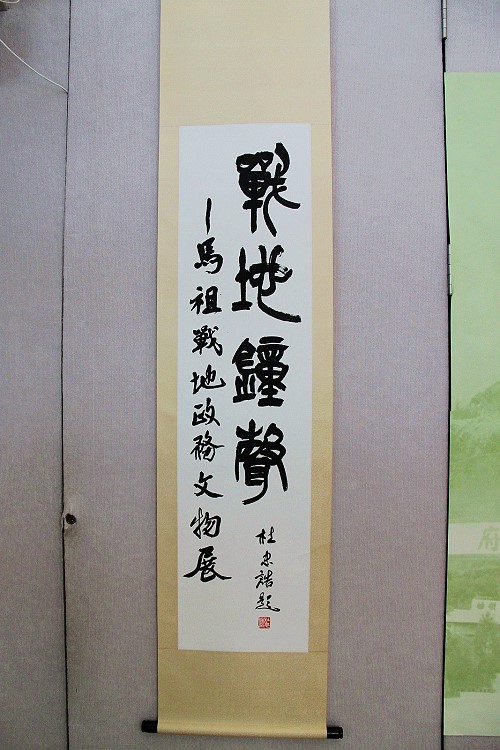 戰地鐘聲
—馬祖戰地政務文物展
杜忠誥題
府